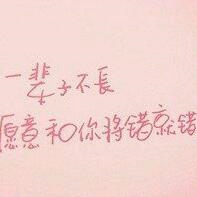 一辈子不長
愿意和你将错就错